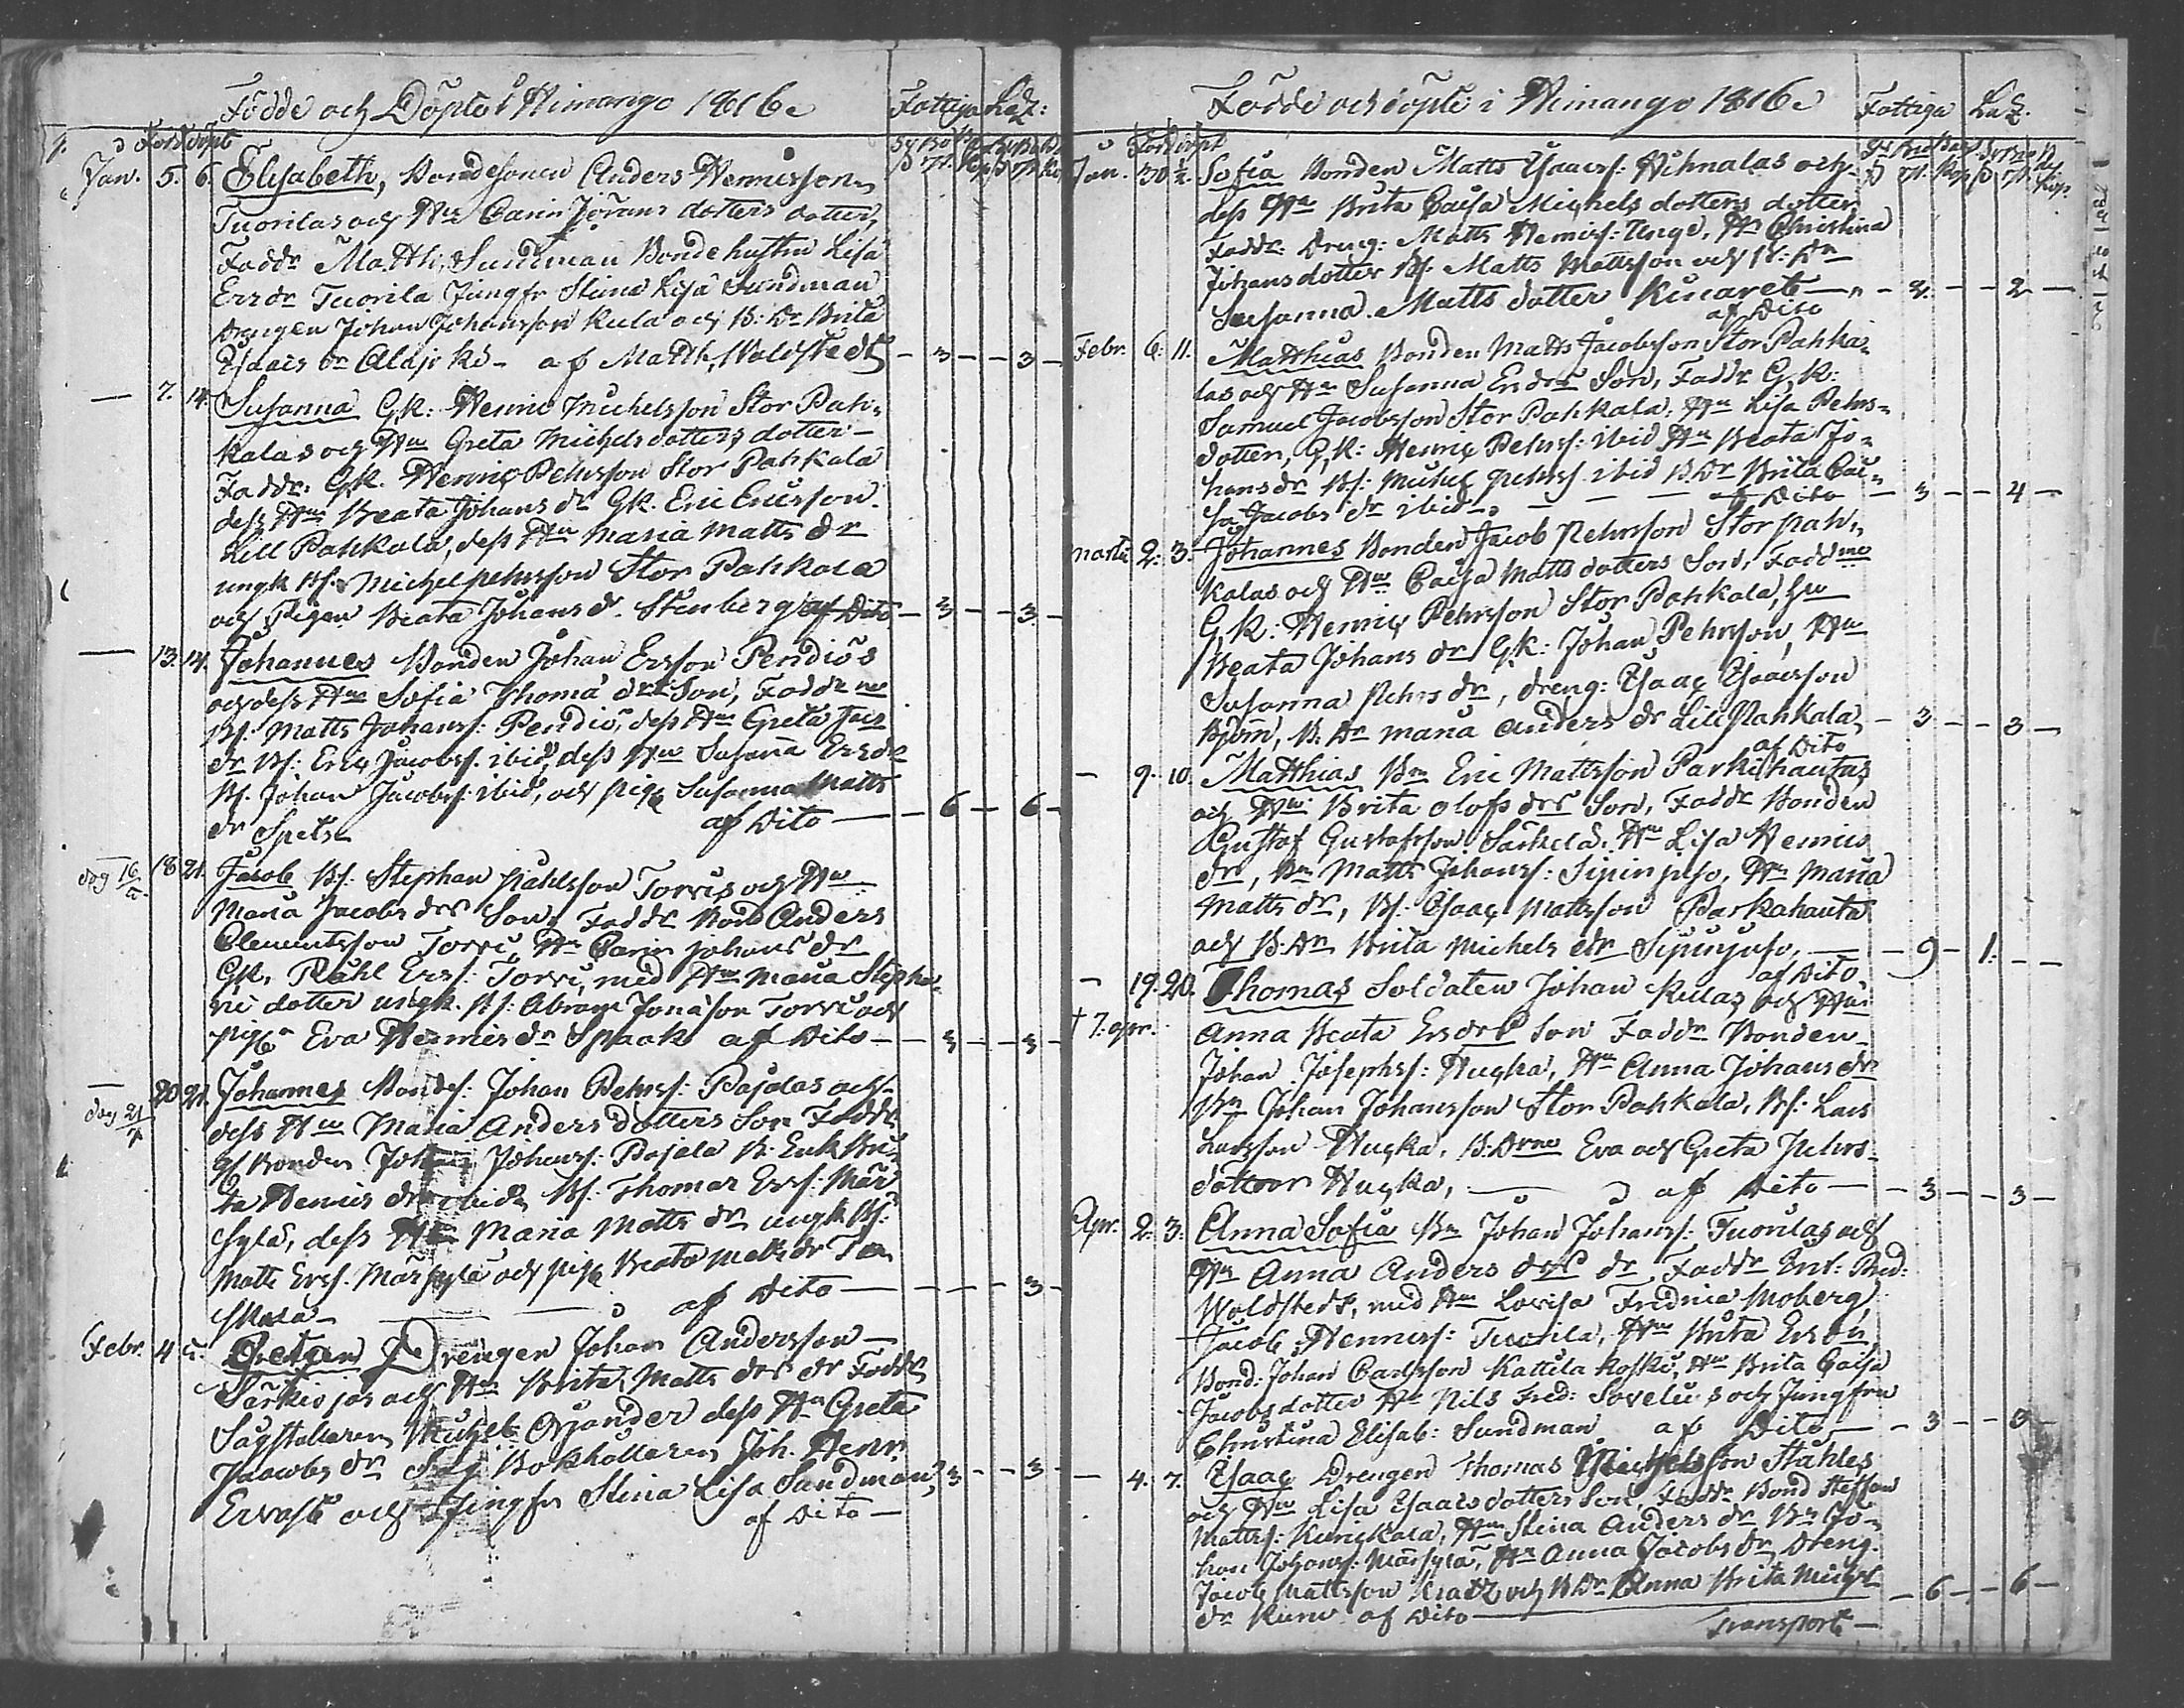 Födde och Döpte i Himango 1816.
Fattiga Lad:
Född döpt
Jan. 5. 6. Elisabeth, Bondesonen Anders Henricsson
Tuorilas och Hu Carin Jörans dotters dotter,
Faddr Matth: Sundman Bondehustru Lisa
Ersdr Tuorila Jungfr Stina Lisa Sundman
Drengen Johan Johansson Rula och B: Dr Brita
Isaacs dr Alajoki - af Matth. Woldstedt - 3 - - 3 -
— 7. 14. Susanna Gk: Henric Michelsson Stor Pah-
kalas och Hu Greta Michelsdotters dotter -
Faddr: Gk. Henric Pehrsson Stor Pahkala
dess Hu Beata Johans dr Gk. Eric Ericsson
Lill Pahkala, dess Hu Maria Matts dr
ungk Bs. Michel pehrsson Stor Pahkala
och Pigan Beata Johans dr Stenberg af Dito - 3 - - 3 -
— 13. 14. Johannes Bonden Johan Ersson Pendiös
och dess Hu Sofia Thomæ drs Son, Faddr ne
Bs. Matts Johanss: Pendiö, dess Hu Greta Jac
dr Bs: Eric Jacobss. ibid, dess Hu Susana Ersdr
Bs. Johan Jacobss: ibid, och piga Susanna Matts
dr Spets af Dito - 6 - 6 -
18 21. Jacob Bs: Stephan Påhlsson Torvis och Hu
Maria Jacobs drs Son, Faddr Bond Anders
Clementsson Torvi, Hu Carin Johans dr
Gk. Påhl Erss: Torvi, med Hu Maria Stepha-
ni dotter ungk. Bs: Abram Jonasson Torvi och
piga Eva Henrics dr Spaak af Dito - 3 - - 3 -
— 20 21. Johannes Bondes: Johan Pehrss: Pajalas och
dess Hu Maria Anders dotters Son Faddr
Bonden Johan Johanss: Pajala B. Enk Bri-
ta Henrics dr ibid, Bs: Thomas Erss: Mär
sylä, dess Hu Maria Matts dr ungk Bs:
Matts Erss. Märsylä och piga Beata Matts dr
af Dito - - - 3 -
Febr. 4 5. Drengen Johan Andersson
Särkiojas och Hu Brita Matts drs dr Faddr
Sågställaren Michel dess Hu Greta
Jacobs dr Såg Bokhållaren Joh. Henr.
Ervast och Jungfr Stina Lisa Sundman, 3 - - 3 -
af Dito -
Födde och döpte i Himango 1816.
Fattiga Lad.
Född döpt
Jan. 30 Sofia Bonden Matts Isaacss: Hihnalas och
dess Hu Brita Caisa Michels dotters dotter
Faddr. Dreng: Matts Henricss: Unge, Hu Christina
Johansdotter Bs. Matts Mattsson och B: Dr
Susanna Matts dotter - - 2 -
af Dito
Febr. 6. 11. Matthias Bonden Matts Jacobsson Stor Pahka-
las och Hu Susanna Ersdrs Son, Faddr Gk:
Samuel Jacobsson Stor Pahkala, Hu Lisa Pehrs-
dotter, Gk: Henric Pehrss: ibid Hu Beata Jo-
hans dr Bs: Michel pehrss ibid B. Dr Brita Cai-
sa Jacobs dr ibid - af Dito - 3 - - 4 -
Martii 2. 3. Johannes Bonden Jacob Pehrsson Stor pah-
kalas och Hu Caisa Matts dotters Son, Fadd ne
Gk: Henric Pehrsson Stor Pahkala, Hu
Beata Johans dr Gk: Johan Pehrsson, Hu
Susanna Pehrs dr, dreng: Isaac Isaacsson
Björn, B. Dr Maria Anders dr Lill Pahkala, - 3 - - 3 -
af Dito
— 9. 10. Matthias Bn Eric Mattsson Parkihautas
och Hu Brita Olofs drs Son, Faddr Bonden
Gustaf Gustafsson Särkelä, Hu Lisa Henrics
dr, Bn Matts Johanss: Sipinpuso, Hu Maria
Matts dr, Bs: Isaac Mattsson Parkahauta
och B. Dr Brita Michels dr Sipinpuso, - 9 - 1. - -
af Dito
— 19. 20. Thomas Soldaten Johan Killas och Hu
† 7. apr. Anna Beata Ersdrs Son Faddr Bonden
Johan Josephss: Huyka, Hu Anna Johans dr
Bn Johan Johansson Stor Pahkala, Bs: Lars
Larsson Huyka, B. Drne Eva och Greta Pehrs
döttrar Huyka, af Dito - 3 - - 3 -
Apr. 2. 3. Anna Sofia Bn Johan Johanss: Tuorilas och
Hu Anna Anders drs dr Faddr
Woldstedt, med Hu Lovisa Fredrica Moberg,
Jacob Henricss: Tuorila, Hu Brita Ersdr
Bond: Johan Carlsson Kattila koski, Hu Brita Caisa
Jacobs dotter Hr Nils Fred: Sovelius och Jungfru
Christina Elisab: Sundman af Dito - 3 - - 3 -
— 4. 7. Isaac Drengen Thomas Michelsson Ståhles
och Hu Lisa Isaacs dotters Son, Faddr Bond Steffan
Mattss: Hu Stina Anders dr Bn Jo-
han Johanss: Märsylä, Hu Anna Jacobs dr, Dreng.
Jacob Mattsson och B Dr Anna Brita Michels
dr af Dito - 6 - - 6 -
Transport -